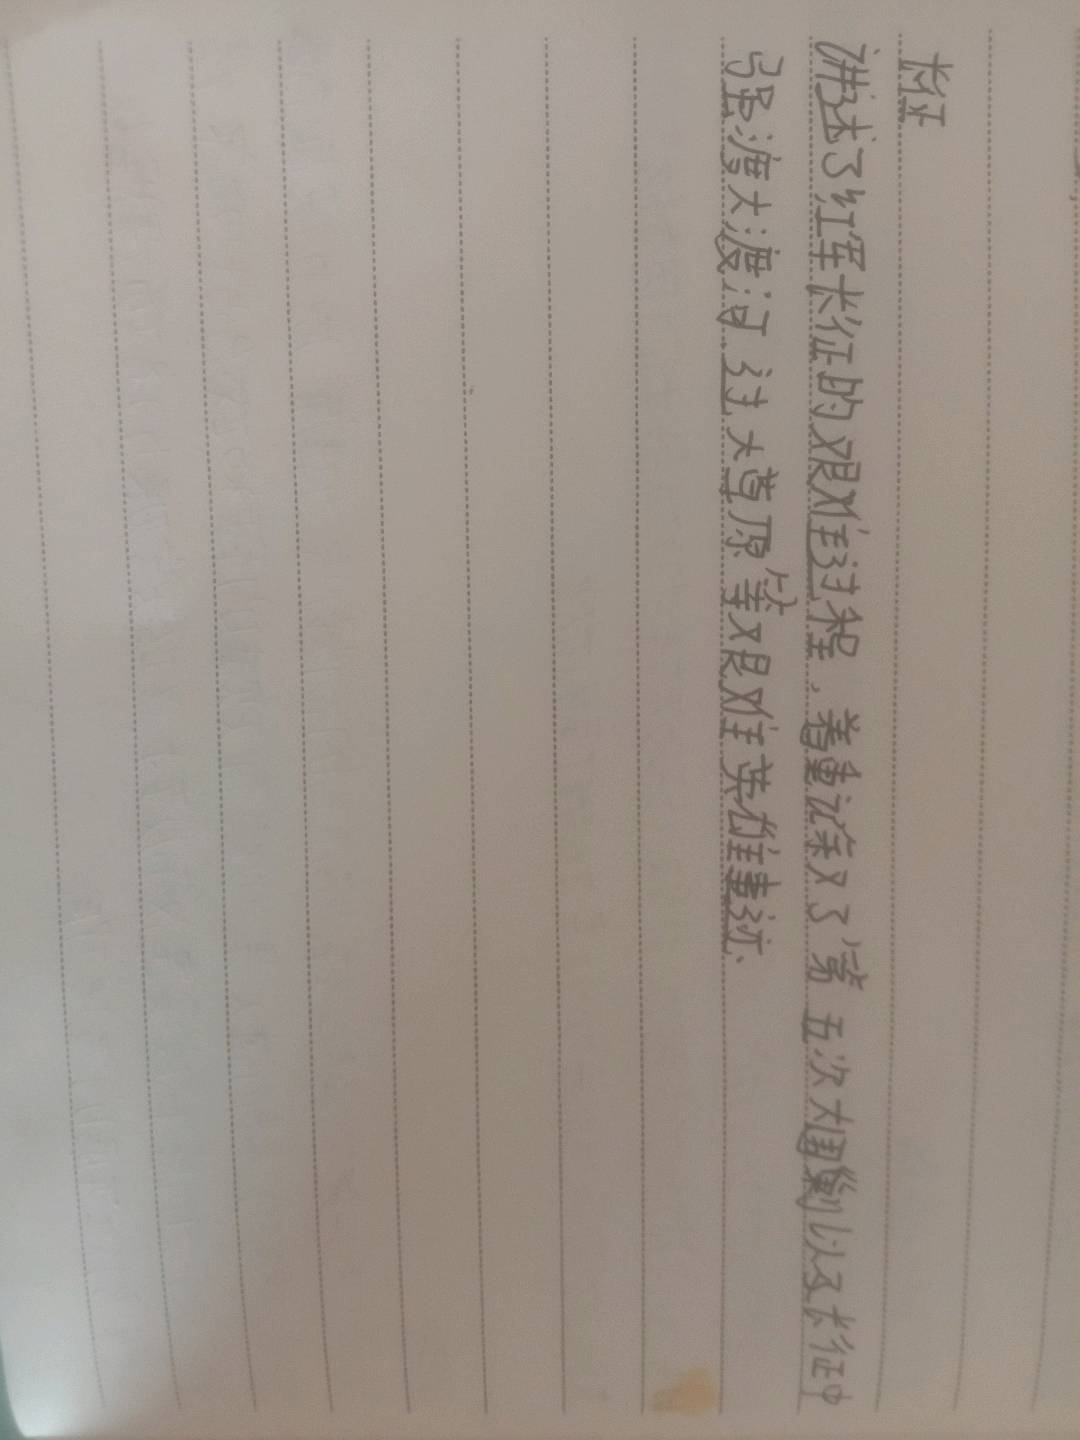 长征
讲述了红军长征的艰难过程、着重记录了第五次大围剿以及长征中
强渡大渡河、过大草原等艰难英雄事迹、